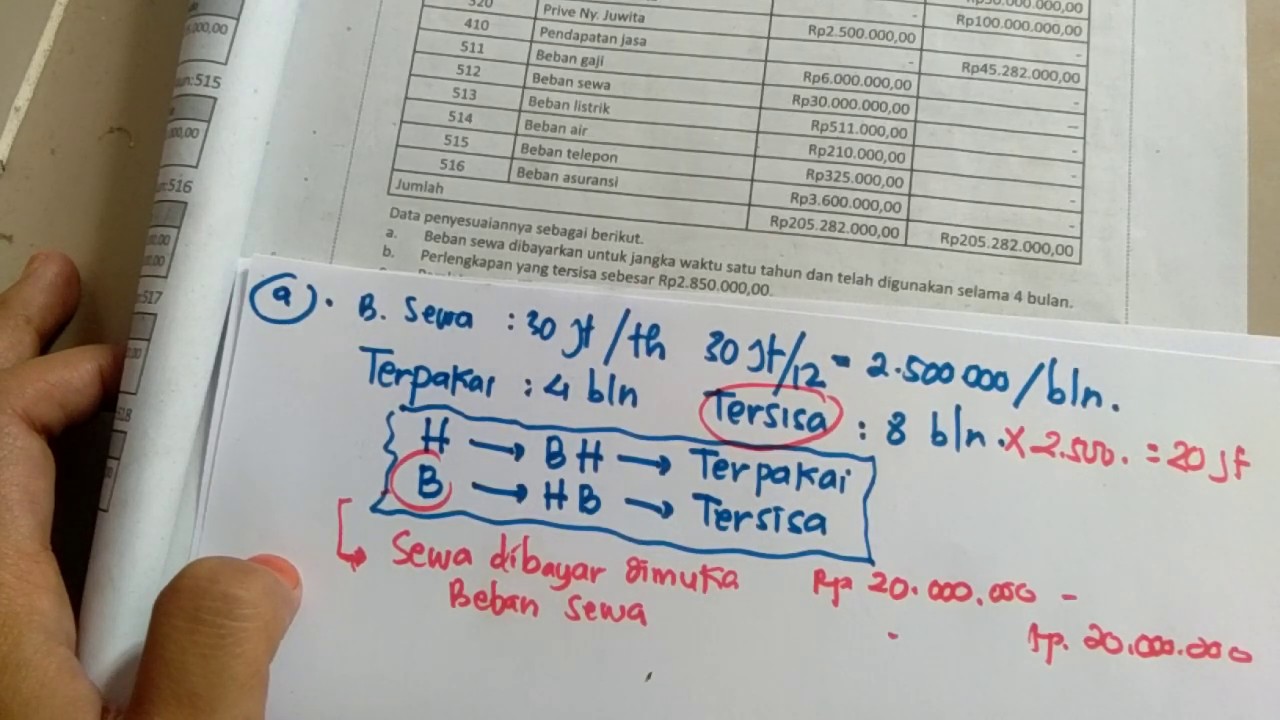 000,00
320
Prive Ny. Juwita
-
Rp100.000.000,00
410
Pendapatan jasa
Rp2.500.000,00
-
511
Beban gaji
-
Rp45.282.000,00
512
Beban sewa
Rp6.000.000,00
-
513
Beban listrik
Rp30.000.000,00
-
514
Beban air
Rp511.000,00
-
515
Beban telepon
Rp210.000,00
-
516
Beban asuransi
Rp325.000,00
-
Rp3.600.000,00
-
Jumlah
Rp205.282.000,00
Rp205.282.000,00
Data penyesuaiannya sebagai berikut.
a. Beban sewa dibayarkan untuk jangka waktu satu tahun dan telah digunakan selama 4 bulan.
b. Perlengkapan yang tersisa sebesar Rp2.850.000,00.
:515
:516
:517
a. B. Sewa : 30 Jt / th 30 Jt/12 = 2.500 000 / bln.
Terpakai : 4 bln Tersisa : 8 bln . X 2.500. = 20 Jt
H → B H → Terpakai
B → H B → Tersisa
Sewa dibayar dimuka Rp 20.000.000 -
Beban sewa - Rp. 20.000.000